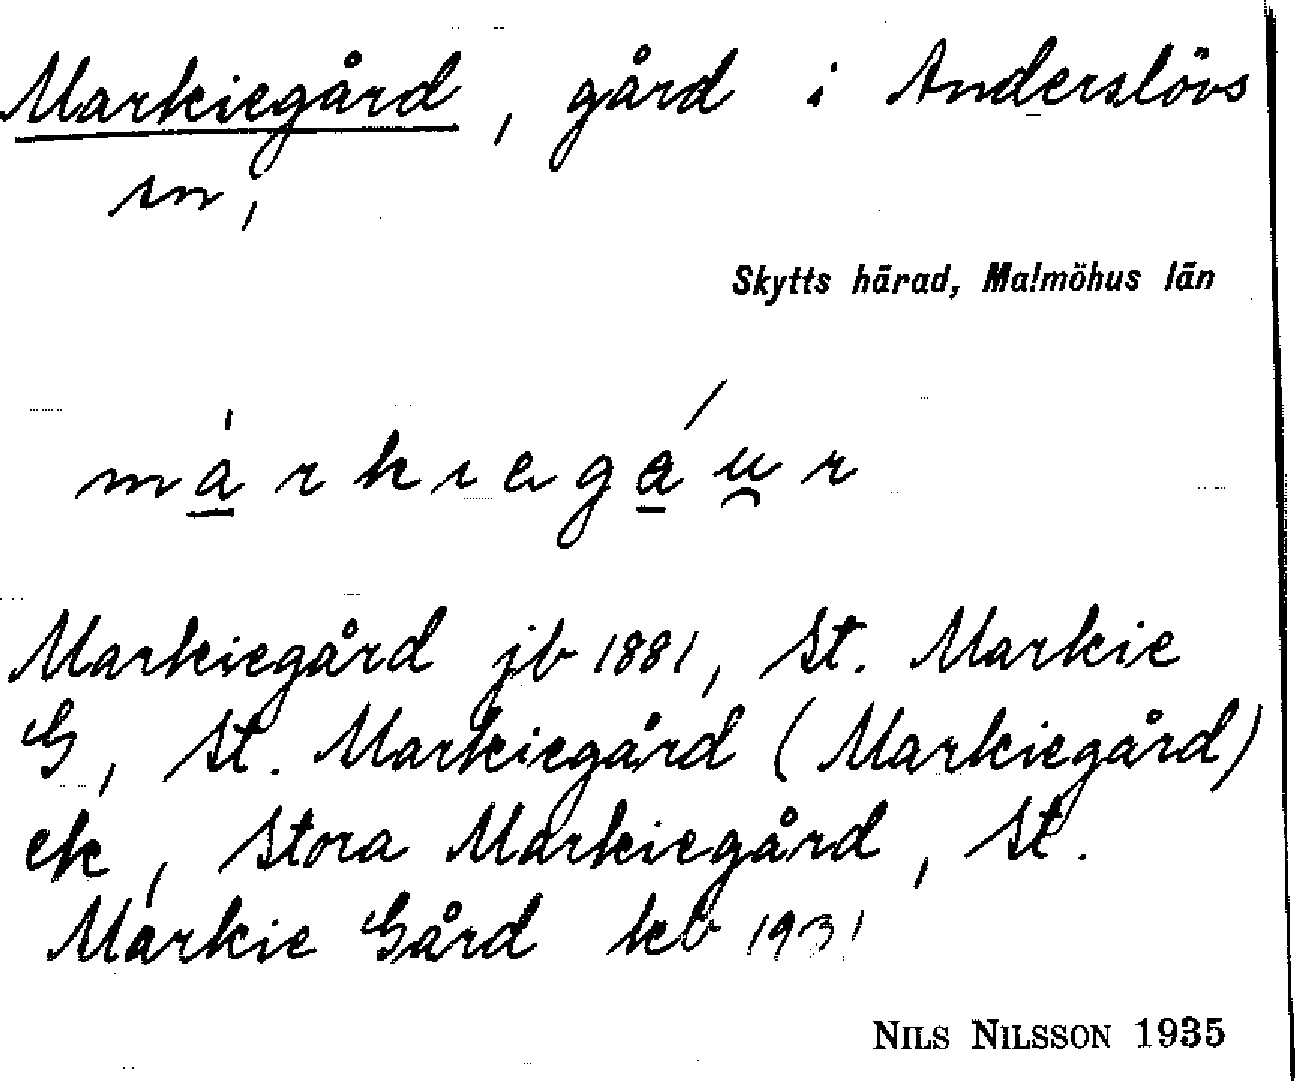 Markiegård, gård i Anderslövs
sn,
Skytts härad, Malmöhus län
ma̱rkıega̱u̯r
Markiegård jb 1881, St. Markie
G, St. Markiegård (Markiegård)
ek, Stora Markiegård, St.
Markie Gård kb 1931
NILS NILSSON 1935